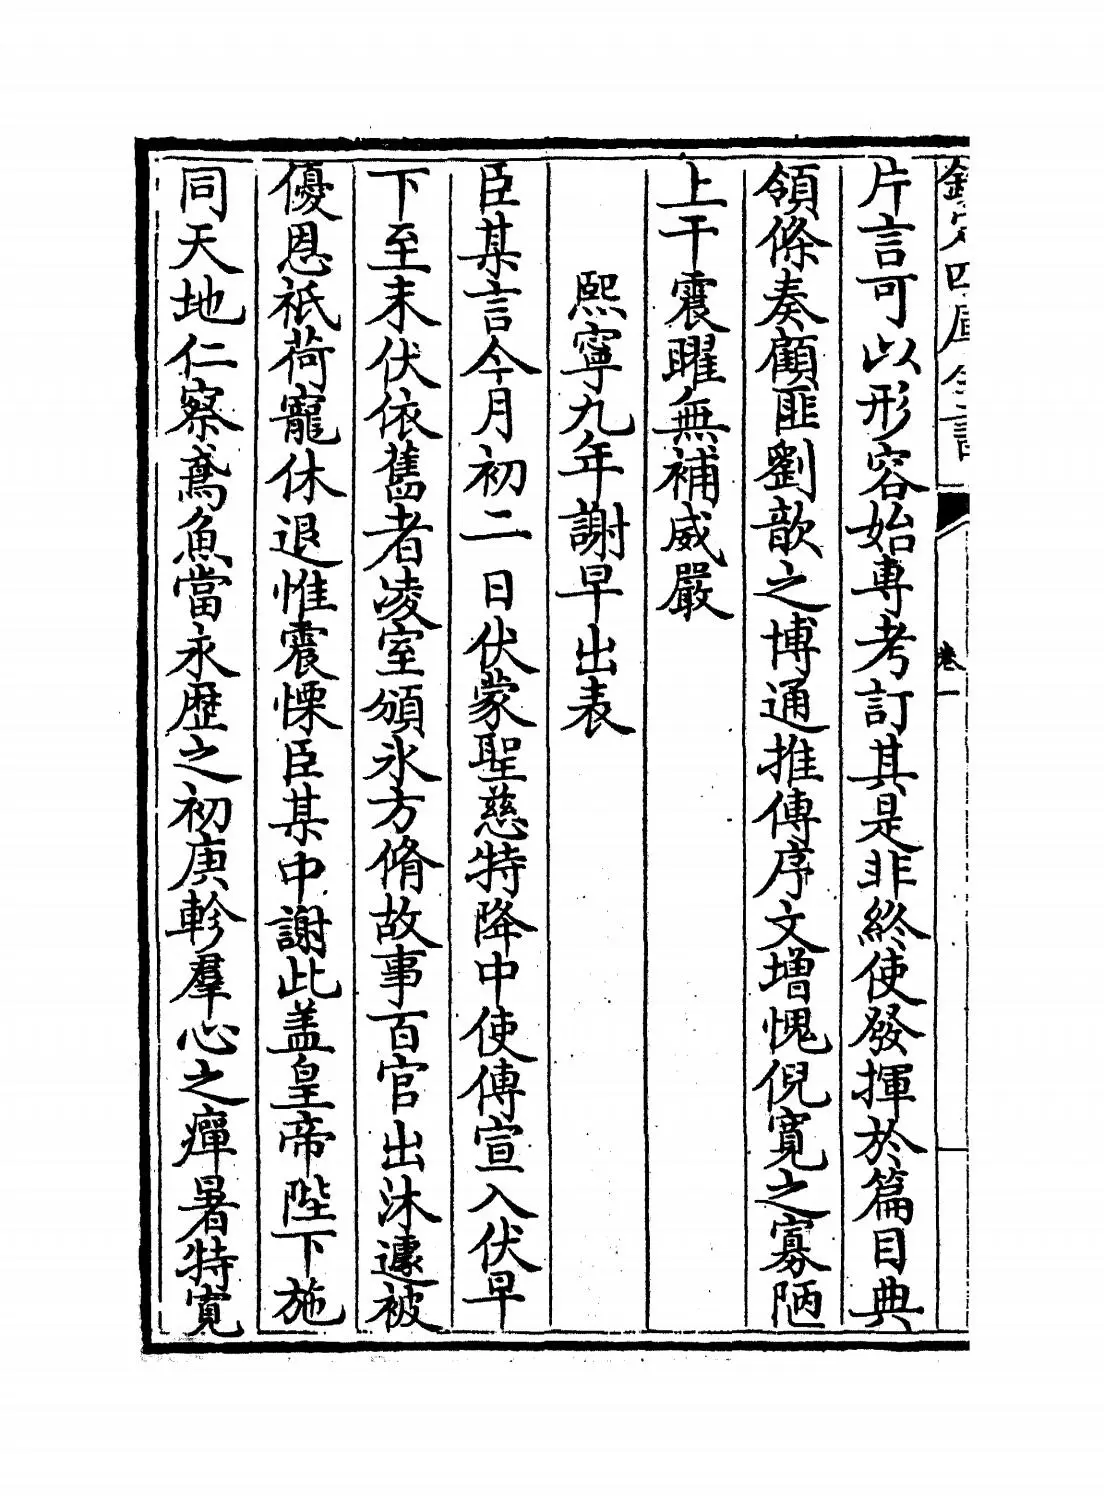 欽定四庫全書
卷一
片言可以形容始専考訂其是非終使發揮於篇目典
領條奏顧匪劉歆之博通推傳序文增愧倪寛之寡陋
上干震曜無補威嚴
熙寧九年謝早出表
臣某言今月初二日伏蒙聖慈特降中使傳宣入伏早
下至末伏依舊者凌室頒氷方脩故事百官出沐遽被
優恩祇荷寵休退惟震慄臣某中謝此盖皇帝陛下施
同天地仁察鳶魚當永歴之初庚軫羣心之癉暑特寛